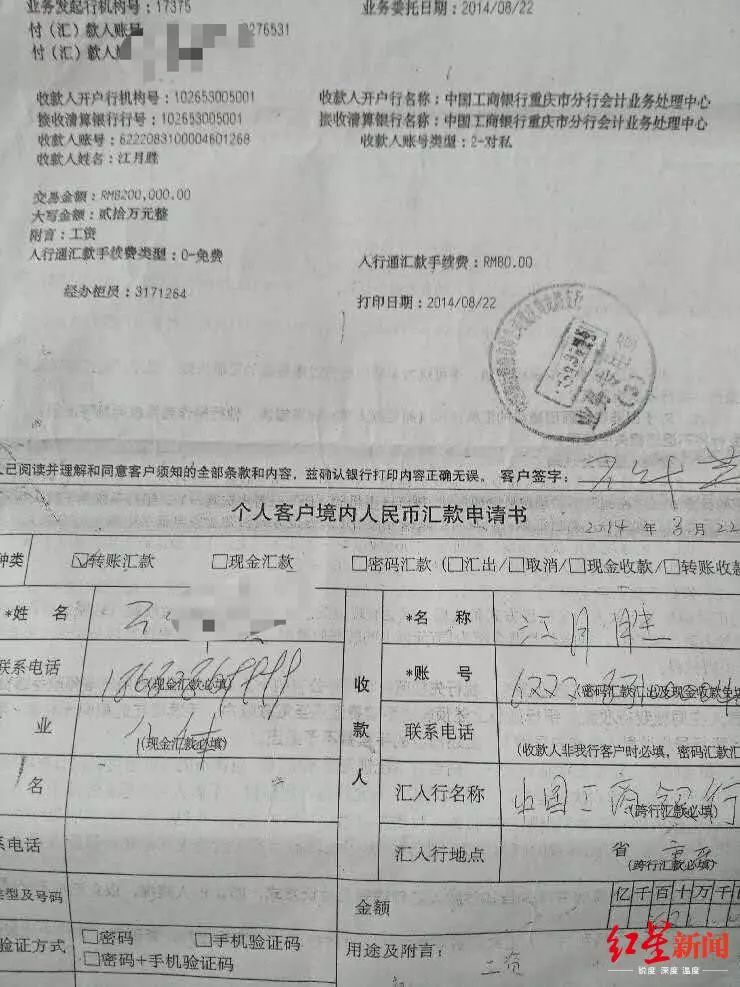 业务发起行机构号：17375 业务委托日期：2014/08/22
付（汇）款人账号 3276531
付（汇）款人
收款人开户行机构号：102653005001 收款人开户行名称：中国工商银行重庆市分行会计业务处理中心
接收清算银行行号：102653005001 接收清算银行名称：中国工商银行重庆市分行会计业务处理中心
收款人账号：6222083100004601268 收款人账号类型：2-对私
收款人姓名：江月胜
交易金额：RMB200,000.00
大写金额：贰拾万元整
附言：工资
人行通汇款手续费类型：0-免费 人行通汇款手续费：RMB0.00
经办柜员：3171264 打印日期：2014/08/22
人已阅读并理解和同意客户须知的全部条款和内容，兹确认银行打印内容正确无误。 客户签字：
个人客户境内人民币汇款申请书
2014 年 8 月 22
种类 ☑转账汇款 □现金汇款 □密码汇款（□汇出/□取消/□现金收款/□转账收款
*姓 名 收款人 *名 称 江月胜
联系电话 (现金汇款必填) *账 号 6222 (密码汇款汇出及现金收款免填
业 (现金汇款必填) 联系电话 (收款人非我行客户时必填，密码汇款汇
名 汇入行名称 中国工商银行 (跨行汇款必填)
系电话 汇入行地点 省 重庆 (跨行汇款必填)
类型及号码 金额 亿千百十万千百
验证方式 □密码 □手机验证码 用途及附言： 工资
□密码+手机验证码
红星新闻
锐度 深度 温度